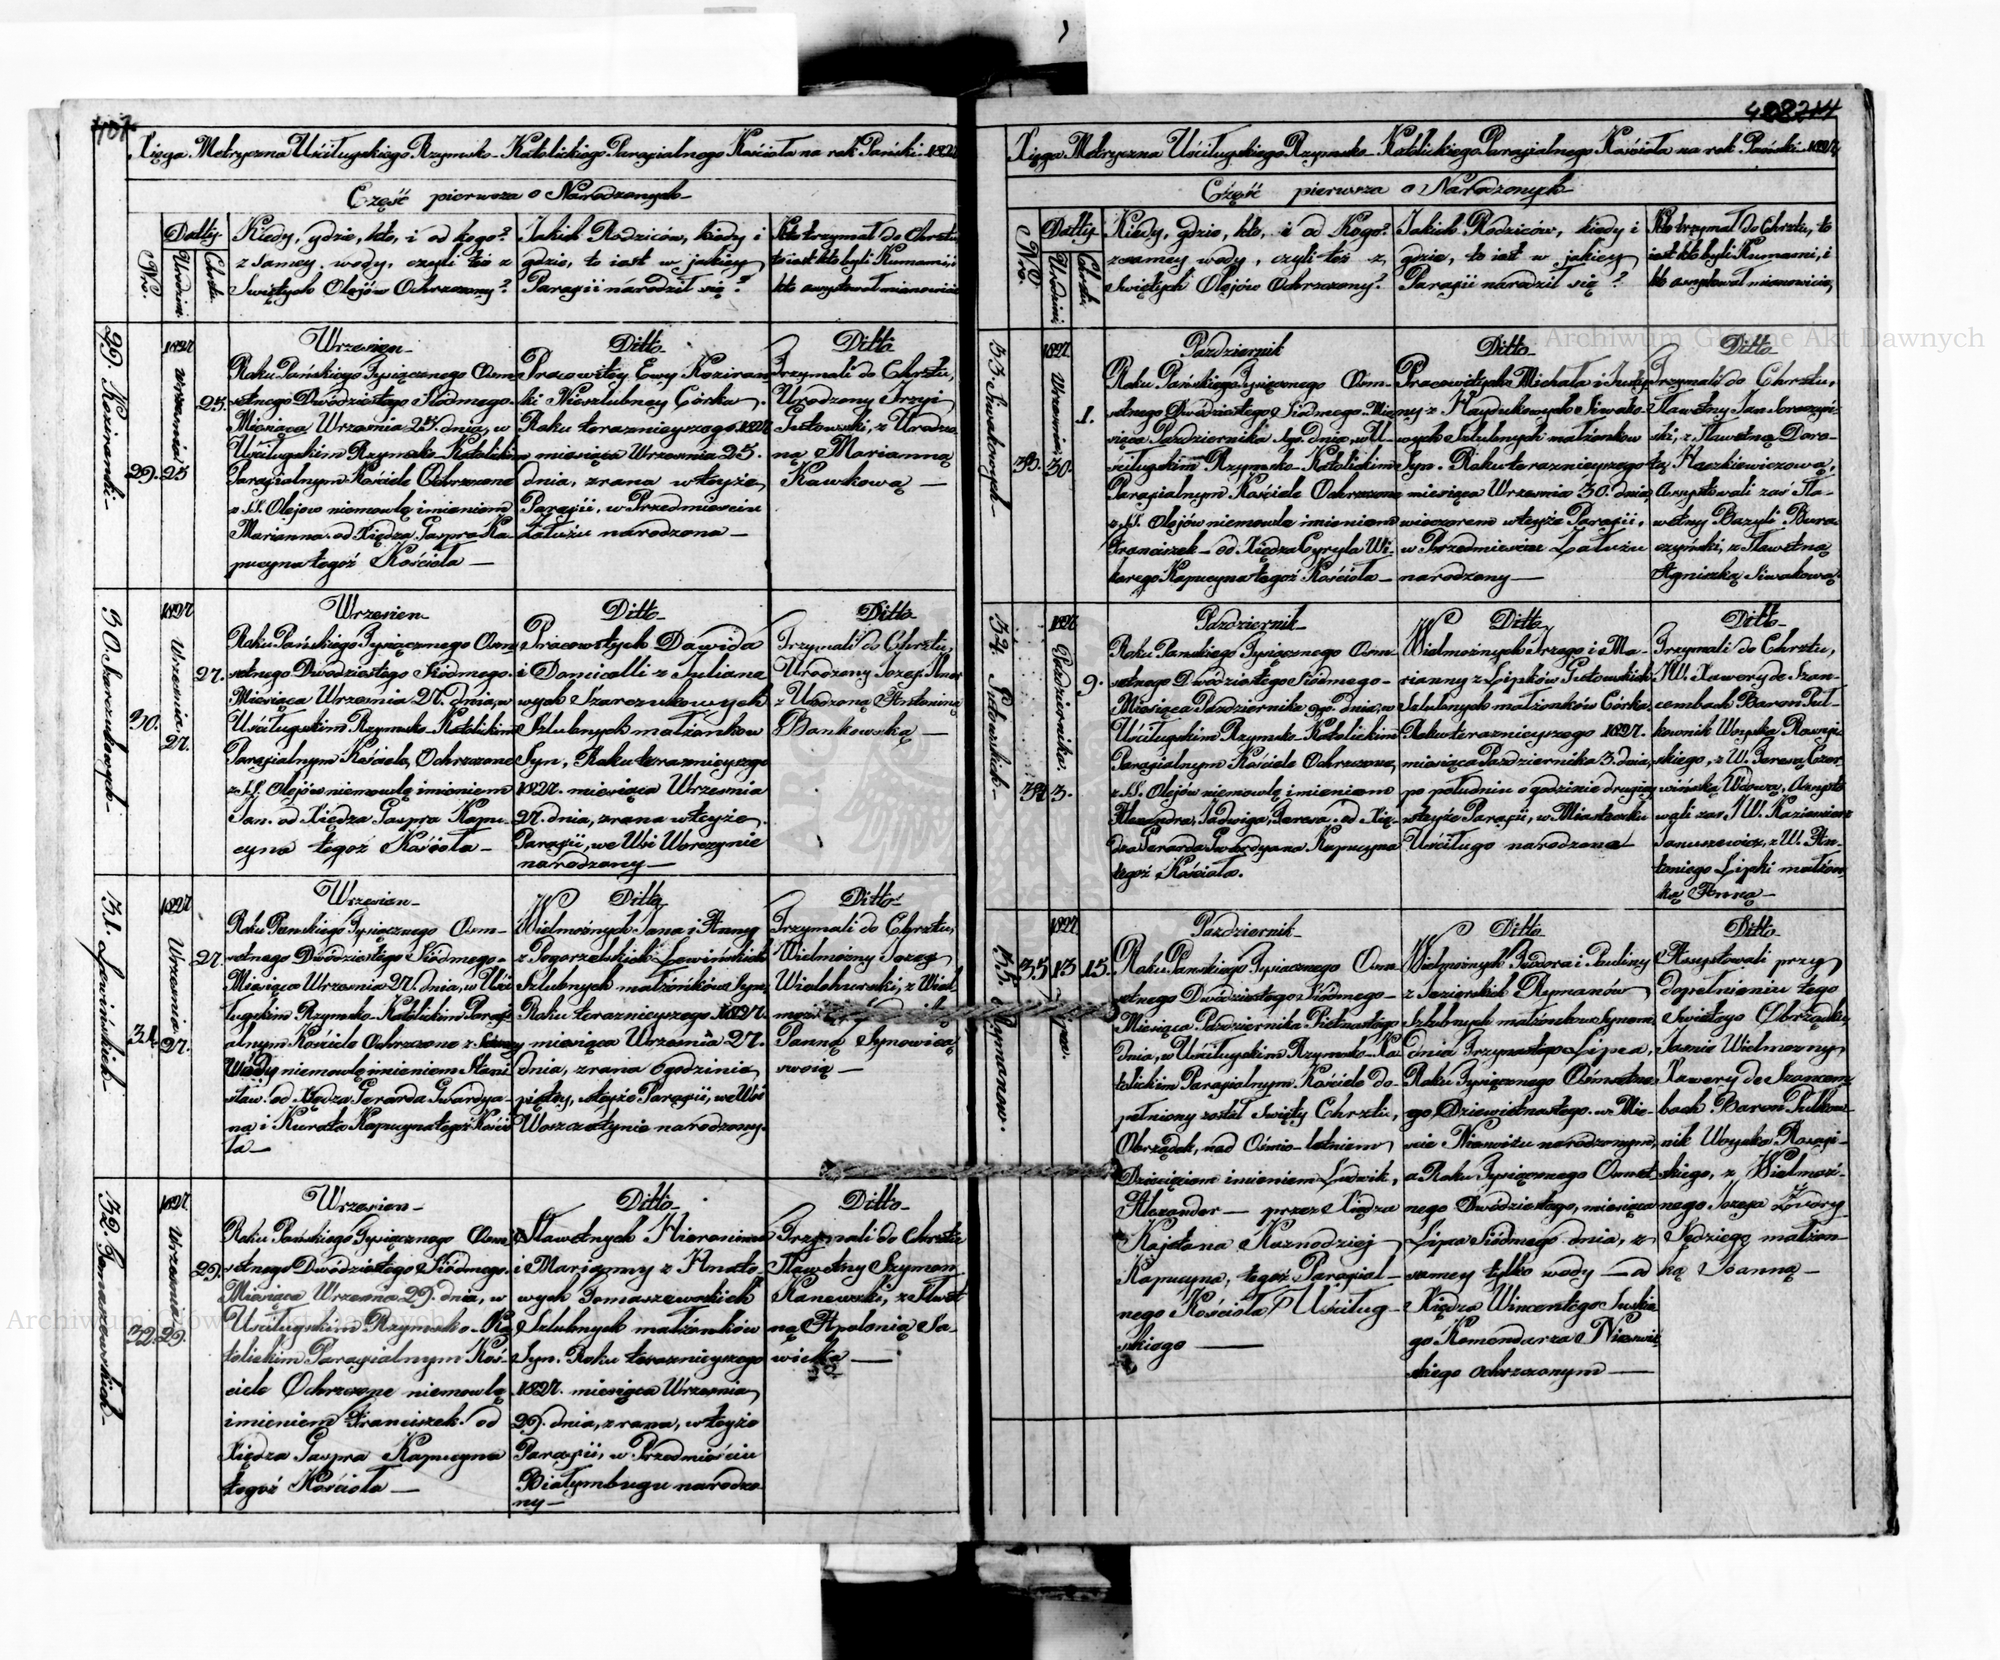 407
Xięga Metryczna Uściługskiego Rzymsko-Katolickiego Parafialnego Kościoła na rok Pański 1827
Część pierwsza o Narodzonych
Nro.
Datty
Urodzin
Chrztu
Kiedy, gdzie, kto, i od kogo?
z samey wody, czyli też z
Świętych Olejów Ochrzczony?
Jakich Rodziców, kiedy i
gdzie, to iest w jakiey
Parafii narodził się?
Kto trzymał do Chrztu,
to iest kto byli Kumami, i
kto assystował mianowicie
29. Koziranki
29.
1827 Września 25
25.
Wrzesien
Roku Pańskiego Tysiącznego Osm-
setnego Dwódziestego Siódmego.
Miesiąca Września 25. dnia, w
Uściługskim Rzymsko-Katolickim
Parafialnym Kościele Ochrzczone
z SS. Olejow niemowlę imieniem
Marianna od Xiędza Gaspra Ka-
pucyna tegoż Kościoła
Ditto
Pracowitey Ewy Koziran-
ki Nieszlubney Córka.
Roku teraznieyszego 1827
miesiąca Września 25.
dnia, zrana w teyże
Parafii, w Przedmieściu
Załużu narodzona
Ditto
Trzymali do Chrztu,
Urodzony Jrzyi
Gutowski, z Urodzo-
ną Marianną
Kawkową
30. Szarczukowych
30.
1827 Września 27.
27.
Wrzesien
Roku Pańskiego Tysiącznego Osm-
setnego Dwódziestego Siódmego.
Miesiąca Września 27. dnia, w
Uściługskim Rzymsko-Katolickim
Parafialnym Kościele, Ochrzczone
z SS. Olejów niemowlę imieniem
Jan. od Xiędza Gaspra Kapu-
cyna tegoż Kościoła
Ditto
Pracowitych Dawida
i Domicelli z Juliana
wych Szarczukowych
Szlubnych małżonkow
Syn, Roku teraznieyszego
1827. miesiąca Września
27. dnia, zrana w teyże
Parafii, we Wsi Worczynie
narodzony
Ditto
Trzymali do Chrztu,
Urodzony Jozef
z Urodzoną Antoniną
Bankowską
31. Lewińskich
31.
1827 Września 27.
27.
Wrzesien
Roku Panskiego Tysiącznego Osm-
setnego Dwódziestego Siódmego
Miesiąca Września 27. dnia, w Uści
ługskim Rzymsko-Katolickim Parafi
alnym Kościele Ochrzczone z Samey
Wody niemowlę imieniem Stani
sław. od Xiędza Gerarda Gwardya-
na i Kurata Kapucyna tegoż Kościo
ła
Ditto
Wielmożnych Jana i Anny
z Pogorzelskich Lewińskich
Szlubnych małżonków Syn,
Roku teraznieyszego 1827.
miesiąca Września 27.
dnia, zrana o godzinie
piątey, w teyże Parafii, we Wsi
Woszczatynie narodzony.
Ditto
Trzymali do Chrztu,
Wielmożny Jozef
Wielohurski, z Wiel
Panną Synowicą
swoią
32. Tomaszewskich
32.
1827 Września 29.
29.
Wrzesien
Roku Pańskiego Tysiącznego Osm
setnego Dwódziestego Siódmego.
Miesiąca Września 29. dnia, w
Uściługskim Rzymsko-Ka
tolickim Parafialnym Koś-
ciele Ochrzczone niemowlę
imieniem Franciszek. od
Xiędza Gaspra Kapucyna
tegoż Kościoła
Ditto
Sławetnych Hieronima
i Marianny z Hnato-
wych Tomaszewskich
Szlubnych małżonków
Syn. Roku teraznieyszego
1827. miesiąca Września
29. dnia, zrana, w teyże
Parafii, w Przedmieściu
Białymbugu narodzo
ny
Ditto
Trzymali do Chrztu
Sławetny Szymon
Kanewski, z Sławet
ną Apolonią Sa-
wicką
408
Xięga Metryczna Uściługskiego Rzymsko-Katolickiego Parafialnego Kościoła na rok Pański 1827
Część pierwsza o Narodzonych
Nro.
Datty
Urodzin
Chrztu
Kiedy, gdzie, kto, i od Kogo?
z samey wody, czyli też z
Świętych Olejów Ochrzczony?
Jakich Rodziców, kiedy i
gdzie, to iest w jakiey
Parafii narodził się?
Kto trzymał do Chrztu, to
iest kto byli Kumami, i
kto assystował mianowicie,
33. Siwakowych
33.
1827 Września 30.
1.
Pazdziernik
Roku Pańskiego Tysiącznego Osm-
setnego Dwódziestego Siódmego Mie-
siąca Pazdziernika 1go. dnia, w U-
ściługskim Rzymsko-Katolickim
Parafialnym Kościele Ochrzczone
z SS. Olejów niemowle imieniem
Franciszek od Xiędza Cyryla Wi-
karego Kapucyna tegoż Kościoła
Ditto
Pracowitych Michała i Justy-
ny z Haydukowych Siwako-
wych Szlubnych małżonkow
Syn. Roku teraznieyszego
miesiąca Września 30. dnia,
wieczorem w teyże Parafii,
w Przedmieściu Załużu
narodzony
Ditto
Trzymali do Chrztu,
Sławetny Jan
ski, z Sławetną Doro-
tą Haczkiewiczową,
Assystowali zaś Sła-
wetny Bazyli Bura
czyński, z Sławetną
Agnieszką Siwakową.
34. Gutowskich
34
1827 Pazdziernika 3.
9.
Pazdziernik
Roku Pańskiego Tysiącznego Osm-
setnego Dwódziestego Siódmego
Miesiąca Pazdziernika 9go. dnia, w
Uściługskim Rzymsko-Katolickim
Parafialnym Kościele Ochrzczona,
z SS. Olejów niemowlę imieniem
Alexandra, Jadwiga, Teresa. od Xię-
dza Gerarda Gwardyana Kapucyna
tegoż Kościoła.
Ditto
Wielmożnych Jrzego i Ma-
rianny z Lipków Gutowskich
Szlubnych małżonków Córka
Roku teraznieyszego 1827.
miesiąca Pazdziernika 3. dnia,
po południu o godzinie drugiey
w teyże Parafii, w Miasteczku
Uściługu narodzona
Ditto
Trzymali do Chrztu,
JW. Xawery de Szan-
cembach Baron Puł-
kownik Woyska Rossyi-
skiego, z W. Teresą Czer
wińską Wdową, Assysto
wali zas JW. Kazimierz
Januszewicz, z W. An-
toniego Lipki małżon-
ką Anną
35. Repmanow.
35
1827
13 Lipca.
15.
Pazdziernik
Roku Pańskiego Tysiącznego Osm-
setnego Dwódziestego Siódmego
Miesiąca Pazdziernika Piętnastego
dnia, w Uściługskim Rzymsko-Ka
tolickim Parafialnym Kościele do-
pełniony został Święty Chrztu,
Obrządek, nad Ośmio-letniem
Dziecięciem imieniem Ludwik,
Alexander przez Xiędza
Kajetana Kaznodziej
Kapucyna, tegoż Parafial-
nego Kościoła Uściług-
skiego
Ditto
Wielmożnych Teodora i Pauliny
z Jezierskich Repmanów
Szlubnych małżonkow Synem,
dnia Trzynastego Lipca,
Roku Tysiącznego Ośmsetne
go, Dziewietnastego. w Mie-
scie Nieswiżu narodzonym,
a Roku Tysiącznego Osmset
nego Dwódziestego, miesiąca
Lipca Siódmego dnia, z
samey tylko wody od
Xiędza Wincentego
go Komendarza Nieswiż
skiego ochrzczonym
Ditto
Assystowali przy
dopełnieniu tego
Świętego Obrządku,
Jaśnie Wielmożny
Xawery de Szancem
bach Baron Pułkow
nik Woyska Rossyi-
skiego, z Wielmoż-
nego Jozefa
Sędziego małżon-
ką Joanną
Archiwum Główne Akt Dawnych
Archiwum Główne Akt Dawnych